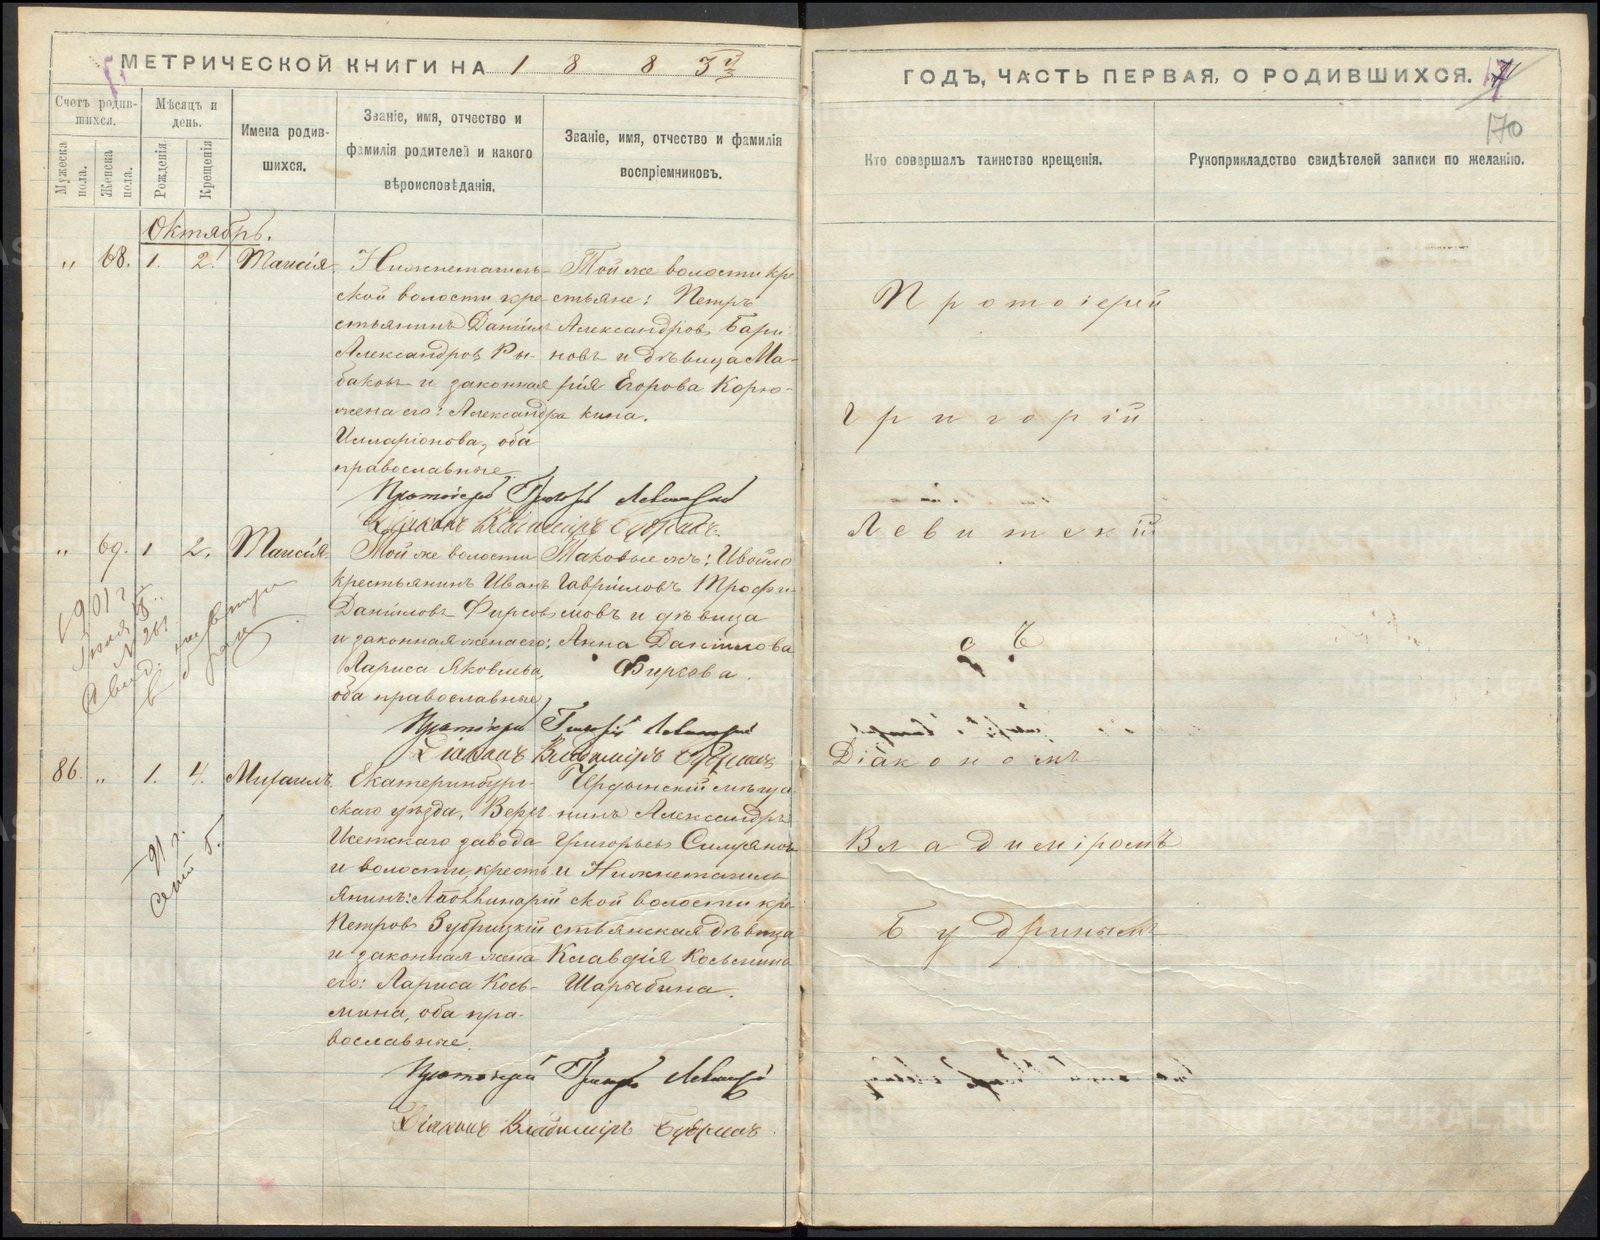 МЕТРИЧЕСКОЙ КНИГИ НА 1 8 8 3й
ГОДЪ, ЧАСТЬ ПЕРВАЯ, О РОДИВШИХСЯ.
170
Счетъ родив-
шихся.
Мѣсяцъ и
день.
Мужеска
пола.
Женска
пола.
Рожденія.
Крещенія
Имена родив-
шихся.
Званіе, имя, отчество и
фамилія родителей и какого
вѣроисповѣданія.
Званіе, имя, отчество и фамилія
воспріемниковъ.
Кто совершалъ таинство крещенія.
Рукоприкладство свидѣтелей записи по желанію.
Октябрь.
„ 68. 1. 2. Таисія
Нижнетагиль-
ской волости кре-
стьянинъ Даніилъ
Александровъ Ры-
баковъ и законная
жена его: Александра
Илларіонова, оба
православные
Той же волости кре-
стьяне: Петръ
Александровъ Бари-
новъ и дѣвица Ма-
рія Егорова Корю-
кина.
Протоіерей Григорій Левитскій
Діаконъ Владиміръ Будринъ.
„ 69. 1 2. Таисія
Той же волости
крестьянинъ Иванъ
Даніиловъ Фирсовъ
и законная жена его:
Лариса Яковлева,
оба православные
Таковые же: Ивойло
Гавріиловъ Трофи-
мовъ и дѣвица
Анна Даніилова
Фирсова.
1901 г.
Протоіерей Григорій Левитскій
Діаконъ Владиміръ Будринъ
86. „ 1. 4. Михаилъ.
Екатеринбург-
скаго уѣзда, Верхъ
Исетскаго завода
и волости, кресть-
янинъ: Аполлинарій
Петровъ Зубрицкій
и законная жена
его: Лариса Кось-
мина, оба пра-
вославные.
Чердынскій мѣща-
нинъ Александръ
Григорьевъ
и Нижнетагиль-
ской волости кре-
стьянская дѣвица
Клавдія Косьмина
Шарыбина.
Протоіерей Григорій Левитскій
Діаконъ Владиміръ Будринъ.
Протоіерей
Григорій
Левитскій
съ
Діакономъ
Владиміромъ
Будринымъ